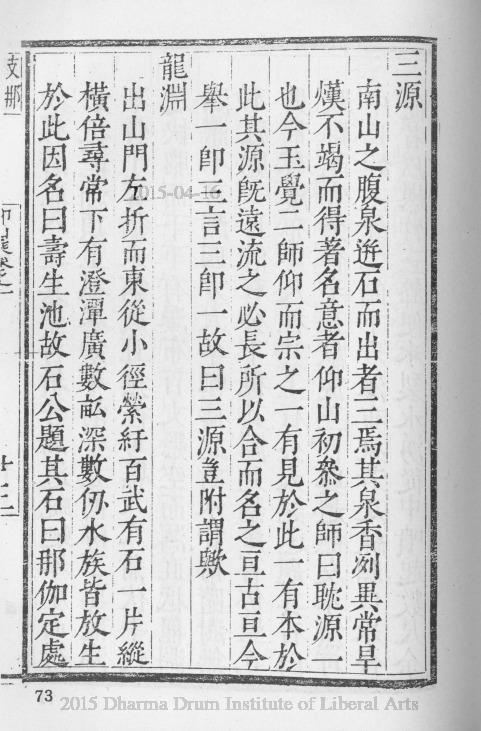 三源
南山之腹泉迸石而出者三焉其泉香冽異常旱
熯不竭而得著名意者仰山初叅之師曰耽源一
也今玉覺二師仰而宗之一有見於此一有本於
此其源旣遠流之必長所以合而名之亘古亘今
舉一卽三言三卽一故曰三源豈附謂歟
龍淵
出山門左折而東從小徑縈紆百武有石一片縱
橫倍尋常下有澄潭廣數畝深數仞水族皆放生
於此因名曰壽生池故石公題其石曰那伽定處
支那
卷之一
十二
73
2015-04-16
2015 Dharma Drum Institute of Liberal Arts